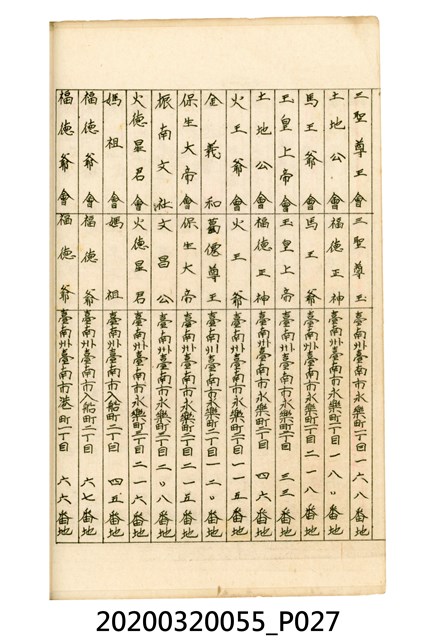 三聖尊王會 三聖尊王 臺南州臺南市永樂町二丁目一六八番地
土地公會 福德正神 臺南州臺南市永樂町二丁目二一八番地
馬王爺會 馬王爺 臺南州臺南市永樂町二丁目
玉皇上帝會 玉皇上帝 臺南州臺南市永樂町二丁目三三番地
土地公會 福德正神 臺南州臺南市永樂町二丁目四六番地
火王爺會 火王爺 臺南州臺南市永樂町二丁目一一五番地
金義和 葛僊尊王 臺南州臺南市永樂町二丁目一二〇番地
保生大帝會 保生大帝 臺南州臺南市永樂町二丁目二一五番地
振南文社 文昌公 臺南州臺南市永樂町二丁目二〇八番地
火德星君會 火德星君 臺南州臺南市永樂町二丁目二一六番地
媽祖會 媽祖 臺南州臺南市入船町二丁目四五番地
福德爺會 福德爺 臺南州臺南市入船町二丁目六七番地
福德爺會 福德爺 臺南州臺南市港町二丁目六六番地
20200320055_P027